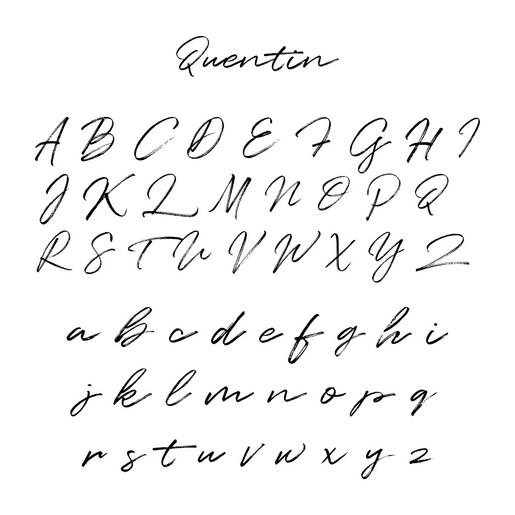 Quentin
A B C D E F G H I
J K L M N O P Q
R S T U V W X Y Z
a b c d e f g h i
j k l m n o p q
r s t u v w x y z